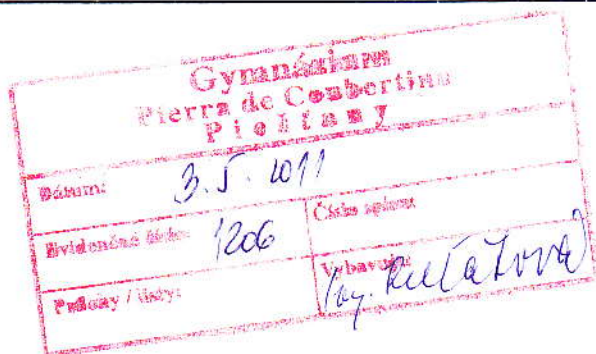 Gymnázium
Pierra de Coubertina
Piešťany
Dátum: 3. 5. 2011
Evidenčné číslo: 1206
Číslo spisu:
Prílohy / listy:
Vybavuje: Ing.